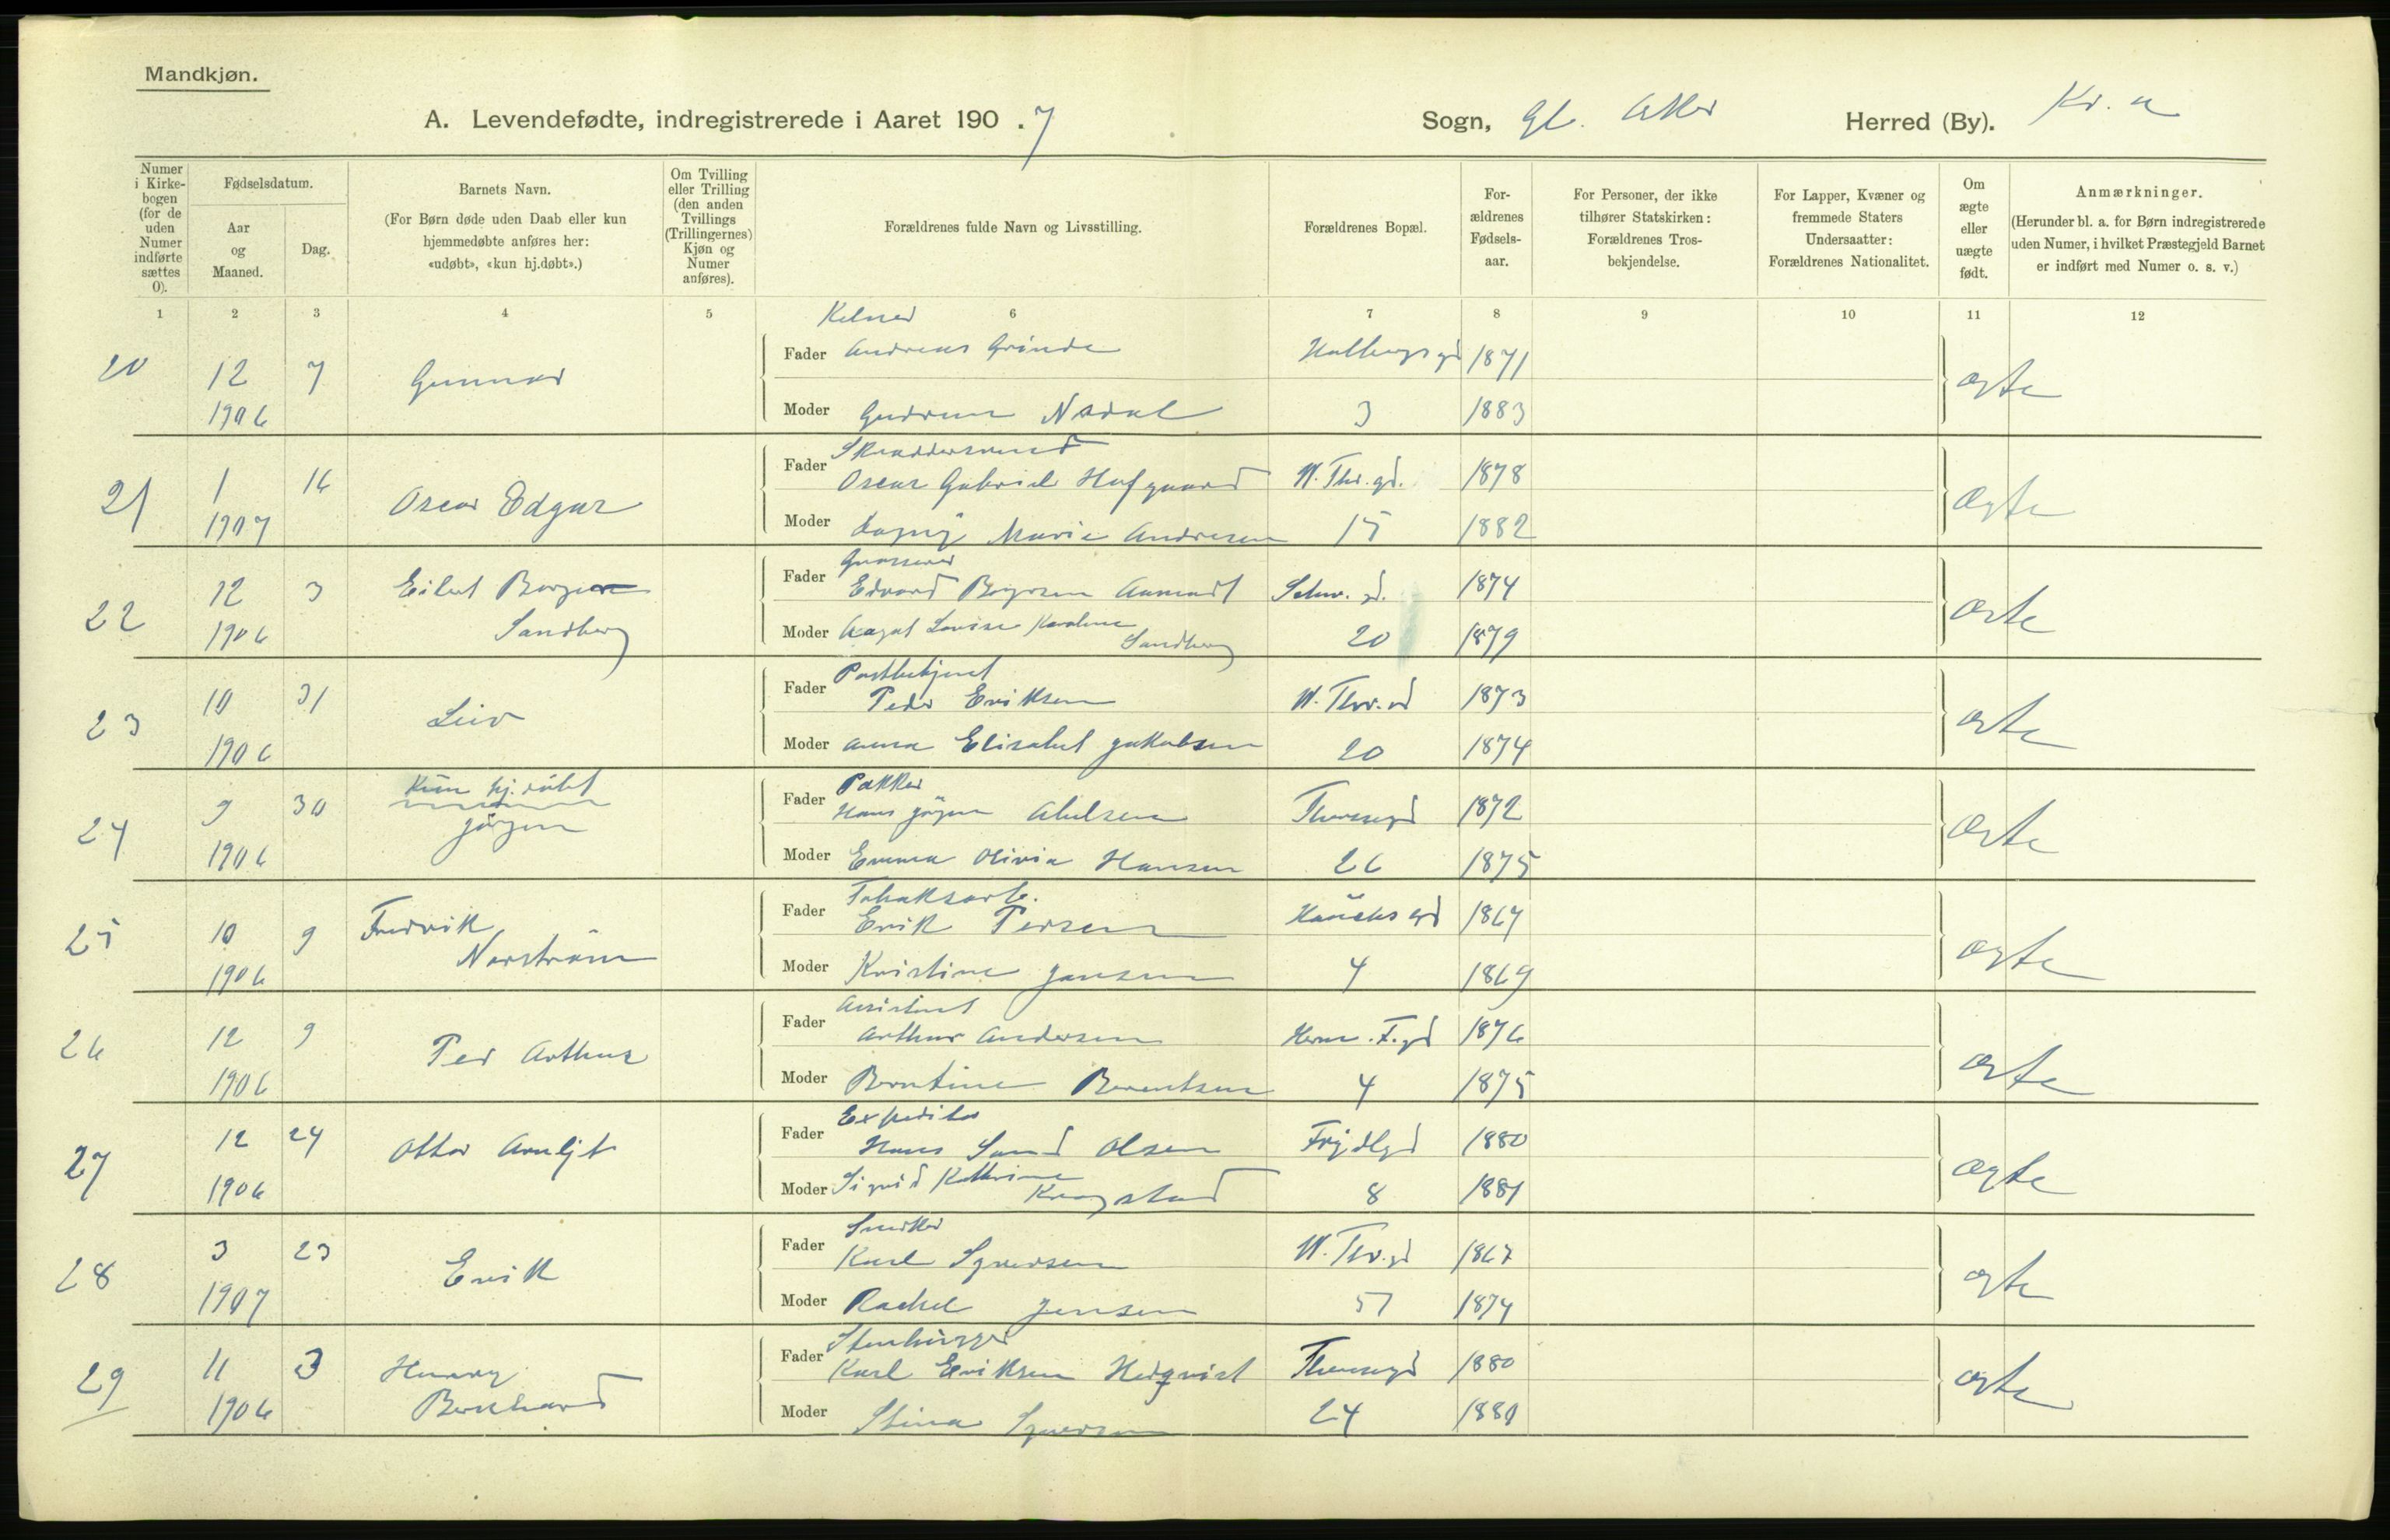 Mandkjøn.
A. Levendefødte, indregistrerede i Aaret 190 . 7 Sogn, Gl. Aker Herred (By). Kr. a
Numer i Kirkebogen (for de uden Numer indførte sættes 0).
Fødselsdatum.
Aar og Maaned.
Dag.
Barnets Navn.
(For Børn døde uden Daab eller kun hjemmedøbte anføres her: «udøbt», «kun hj.døbt».)
Om Tvilling eller Trilling (den anden Tvillings (Trillingernes) Kjøn og Numer anføres).
Forældrenes fulde Navn og Livsstilling.
Forældrenes Bopæl.
Forældrenes Fødselsaar.
For Personer, der ikke tilhører Statskirken: Forældrenes Trosbekjendelse.
For Lapper, Kvæner og fremmede Staters Undersaatter: Forældrenes Nationalitet.
Om ægte eller uægte født.
Anmærkninger.
(Herunder bl. a. for Børn indregistrerede uden Numer, i hvilket Præstegjeld Barnet er indført med Numer o. s. v.)
1 2 3 4 5 6 7 8 9 10 11 12
Kelner
20 12 7 Gunnar Fader Andreas Grinde 1871 ægte
1906 Moder Gudrun 3 1883
Skræddersvend
21 1 16 Oscar Edgar Fader Oscar Gabriel Hofgaard W. Thr. gd. 1878 ægte
1907 Moder Dagny Marie Andresen 15 1882
Grosserer
22 12 3 Eilert Fader Edvard Schw. gd. 1874 ægte
1906 Sandberg Moder Aagot Lovise Karoline Sandberg 20 1879
Postbetjent
23 10 31 Leiv Fader Peder Eriksen W. Thr. gd 1873 ægte
1906 Moder Anna Elisabet Jakobsen 20 1874
Kun hj. døbt Pakker
24 9 30 Jörgen Fader Hans Jörgen Abelsen Theresegd 1872 ægte
1906 Moder Emma Olivia Hansen 26 1875
Tobaksarb.
25 10 9 Fredrik Fader Erik Persen Hauchs gd 1867 ægte
1906 Norström Moder Kristine Jansen 4 1869
Assistent
26 12 9 Per Arthur Fader Arthur Andersen Herm. F. gd 1876 ægte
1906 Moder Berntine Berentsen 4 1875
Expeditør
27 12 24 Ottar Arnljot Fader Hans Sand Olsen 1880 ægte
1906 Moder Sigrid Kathrine Krogstad 8 1881
Snedker
28 3 23 Erik Fader Karl Syversen W. Thr. gd 1867 ægte
1907 Moder Rachel Jensen 57 1874
Stenhugger
29 11 3 Henry Fader Karl Eriksen Hedqvist Theresegd 1880 ægte
1906 Bernhard Moder Stina Syversen 24 1880